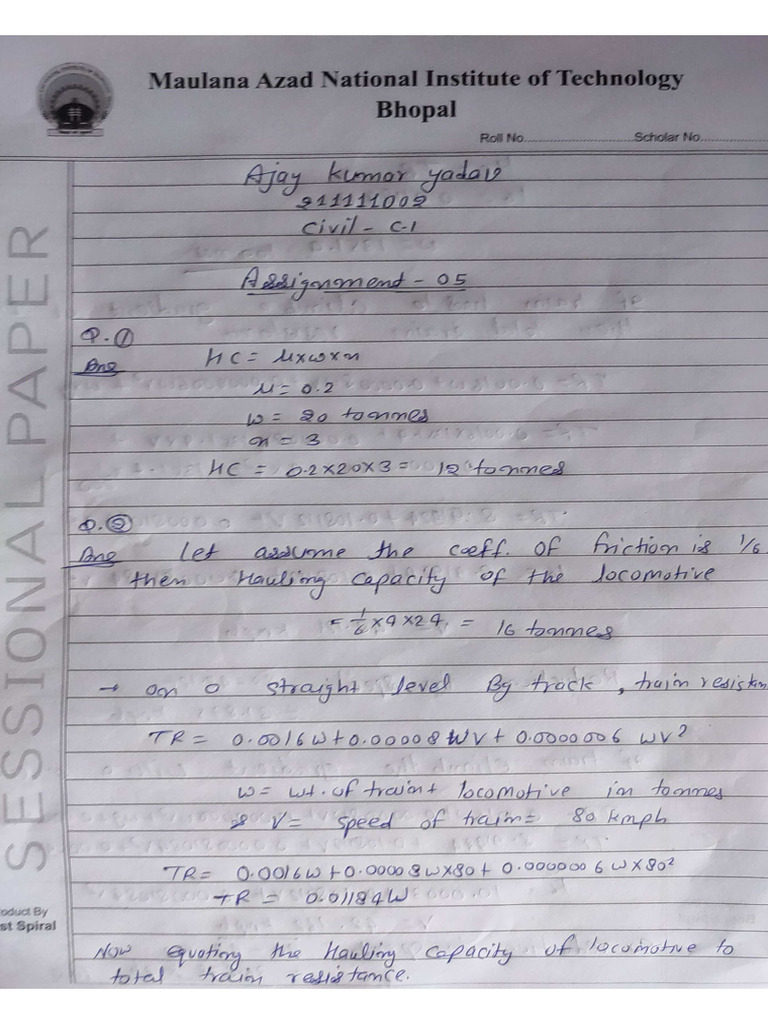 Maulana Azad National Institute of Technology
Bhopal
Roll No.............................Scholar No................
Ajay Kumar Yadav
211111002
Civil - C-1
Assignment - 05
Q. ①
Ans HC = μ×w×n
μ = 0.2
w = 20 tonnes
n = 3
HC = 0.2×20×3 = 12 tonnes
Q. ②
Ans Let assume the coeff. of friction is 1/6
then Hauling capacity of the locomotive
= 1/6 ×4×24 = 16 tonnes
→ on a straight level By track, train resistan
TR = 0.0016w+0.00008wv+0.0000006 wv²
w = wt. of train+ locomotive in tonnes
& V = speed of train = 80 kmph
TR = 0.0016w+0.00008w×80+0.0000006w×80²
TR = 0.01184w
Now equating the Hauling capacity of locomotive to
total train resistance.
SESSIONAL PAPER
oduct By
st Spiral